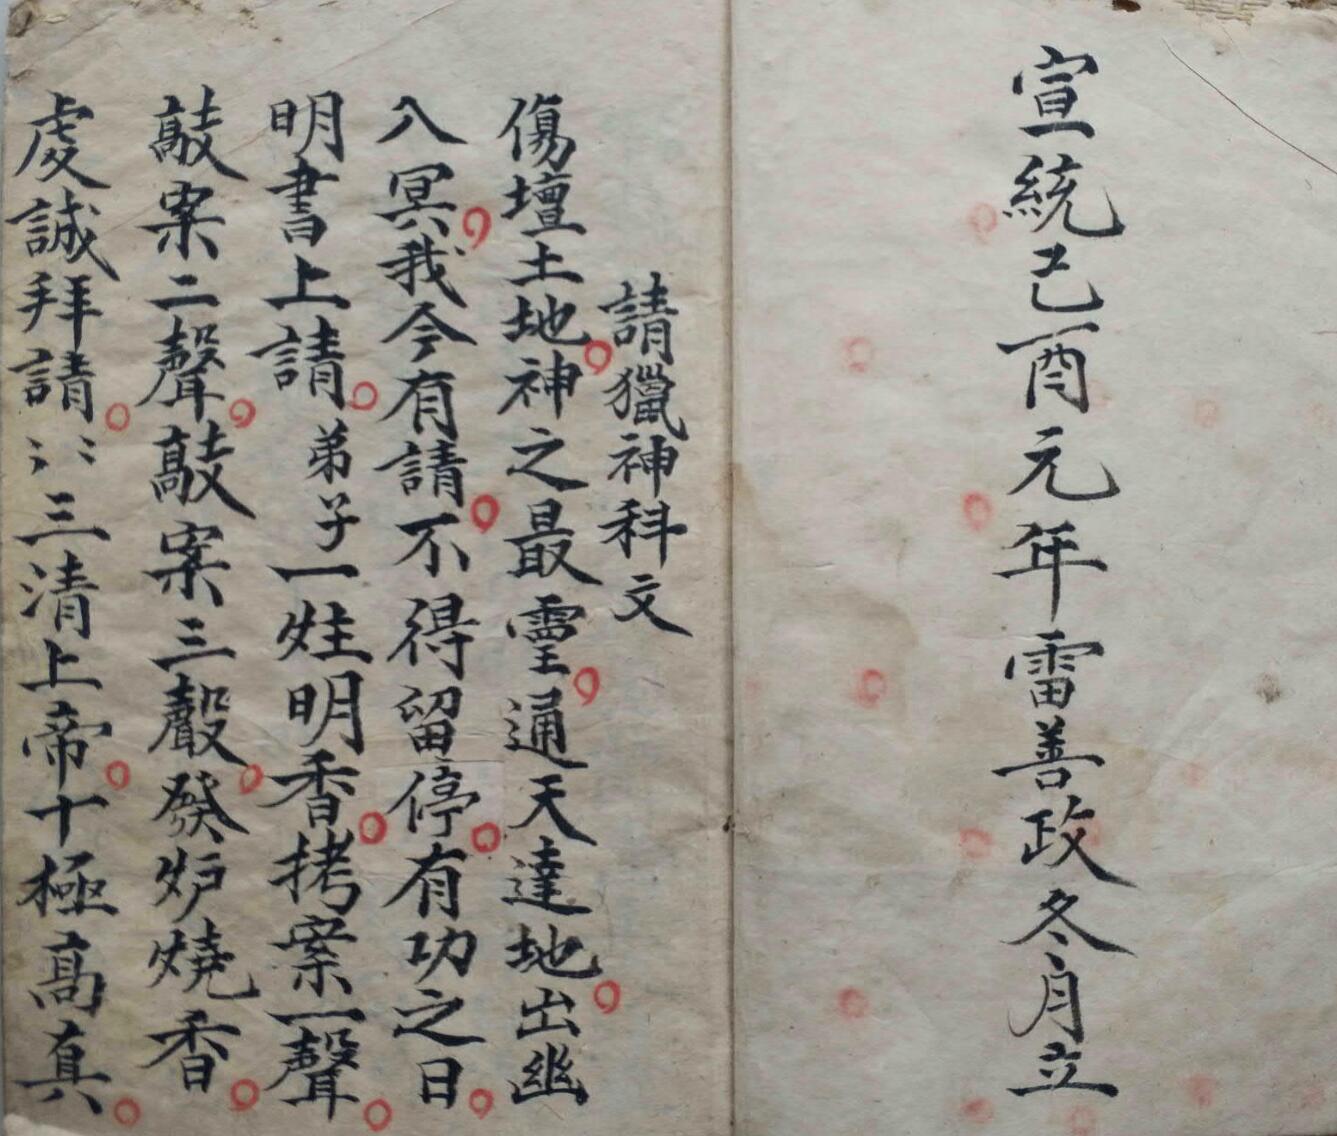 宣統己酉元年雷善政冬月立
請獵神科文
傷壇土地神之最靈通天達地出幽
八冥我今有請不得留停有功之日
明書上請弟子一炷明香拷案一聲
敲案二聲敲案三聲發炉燒香
虔誠拜請〻〻三清上帝十極高真